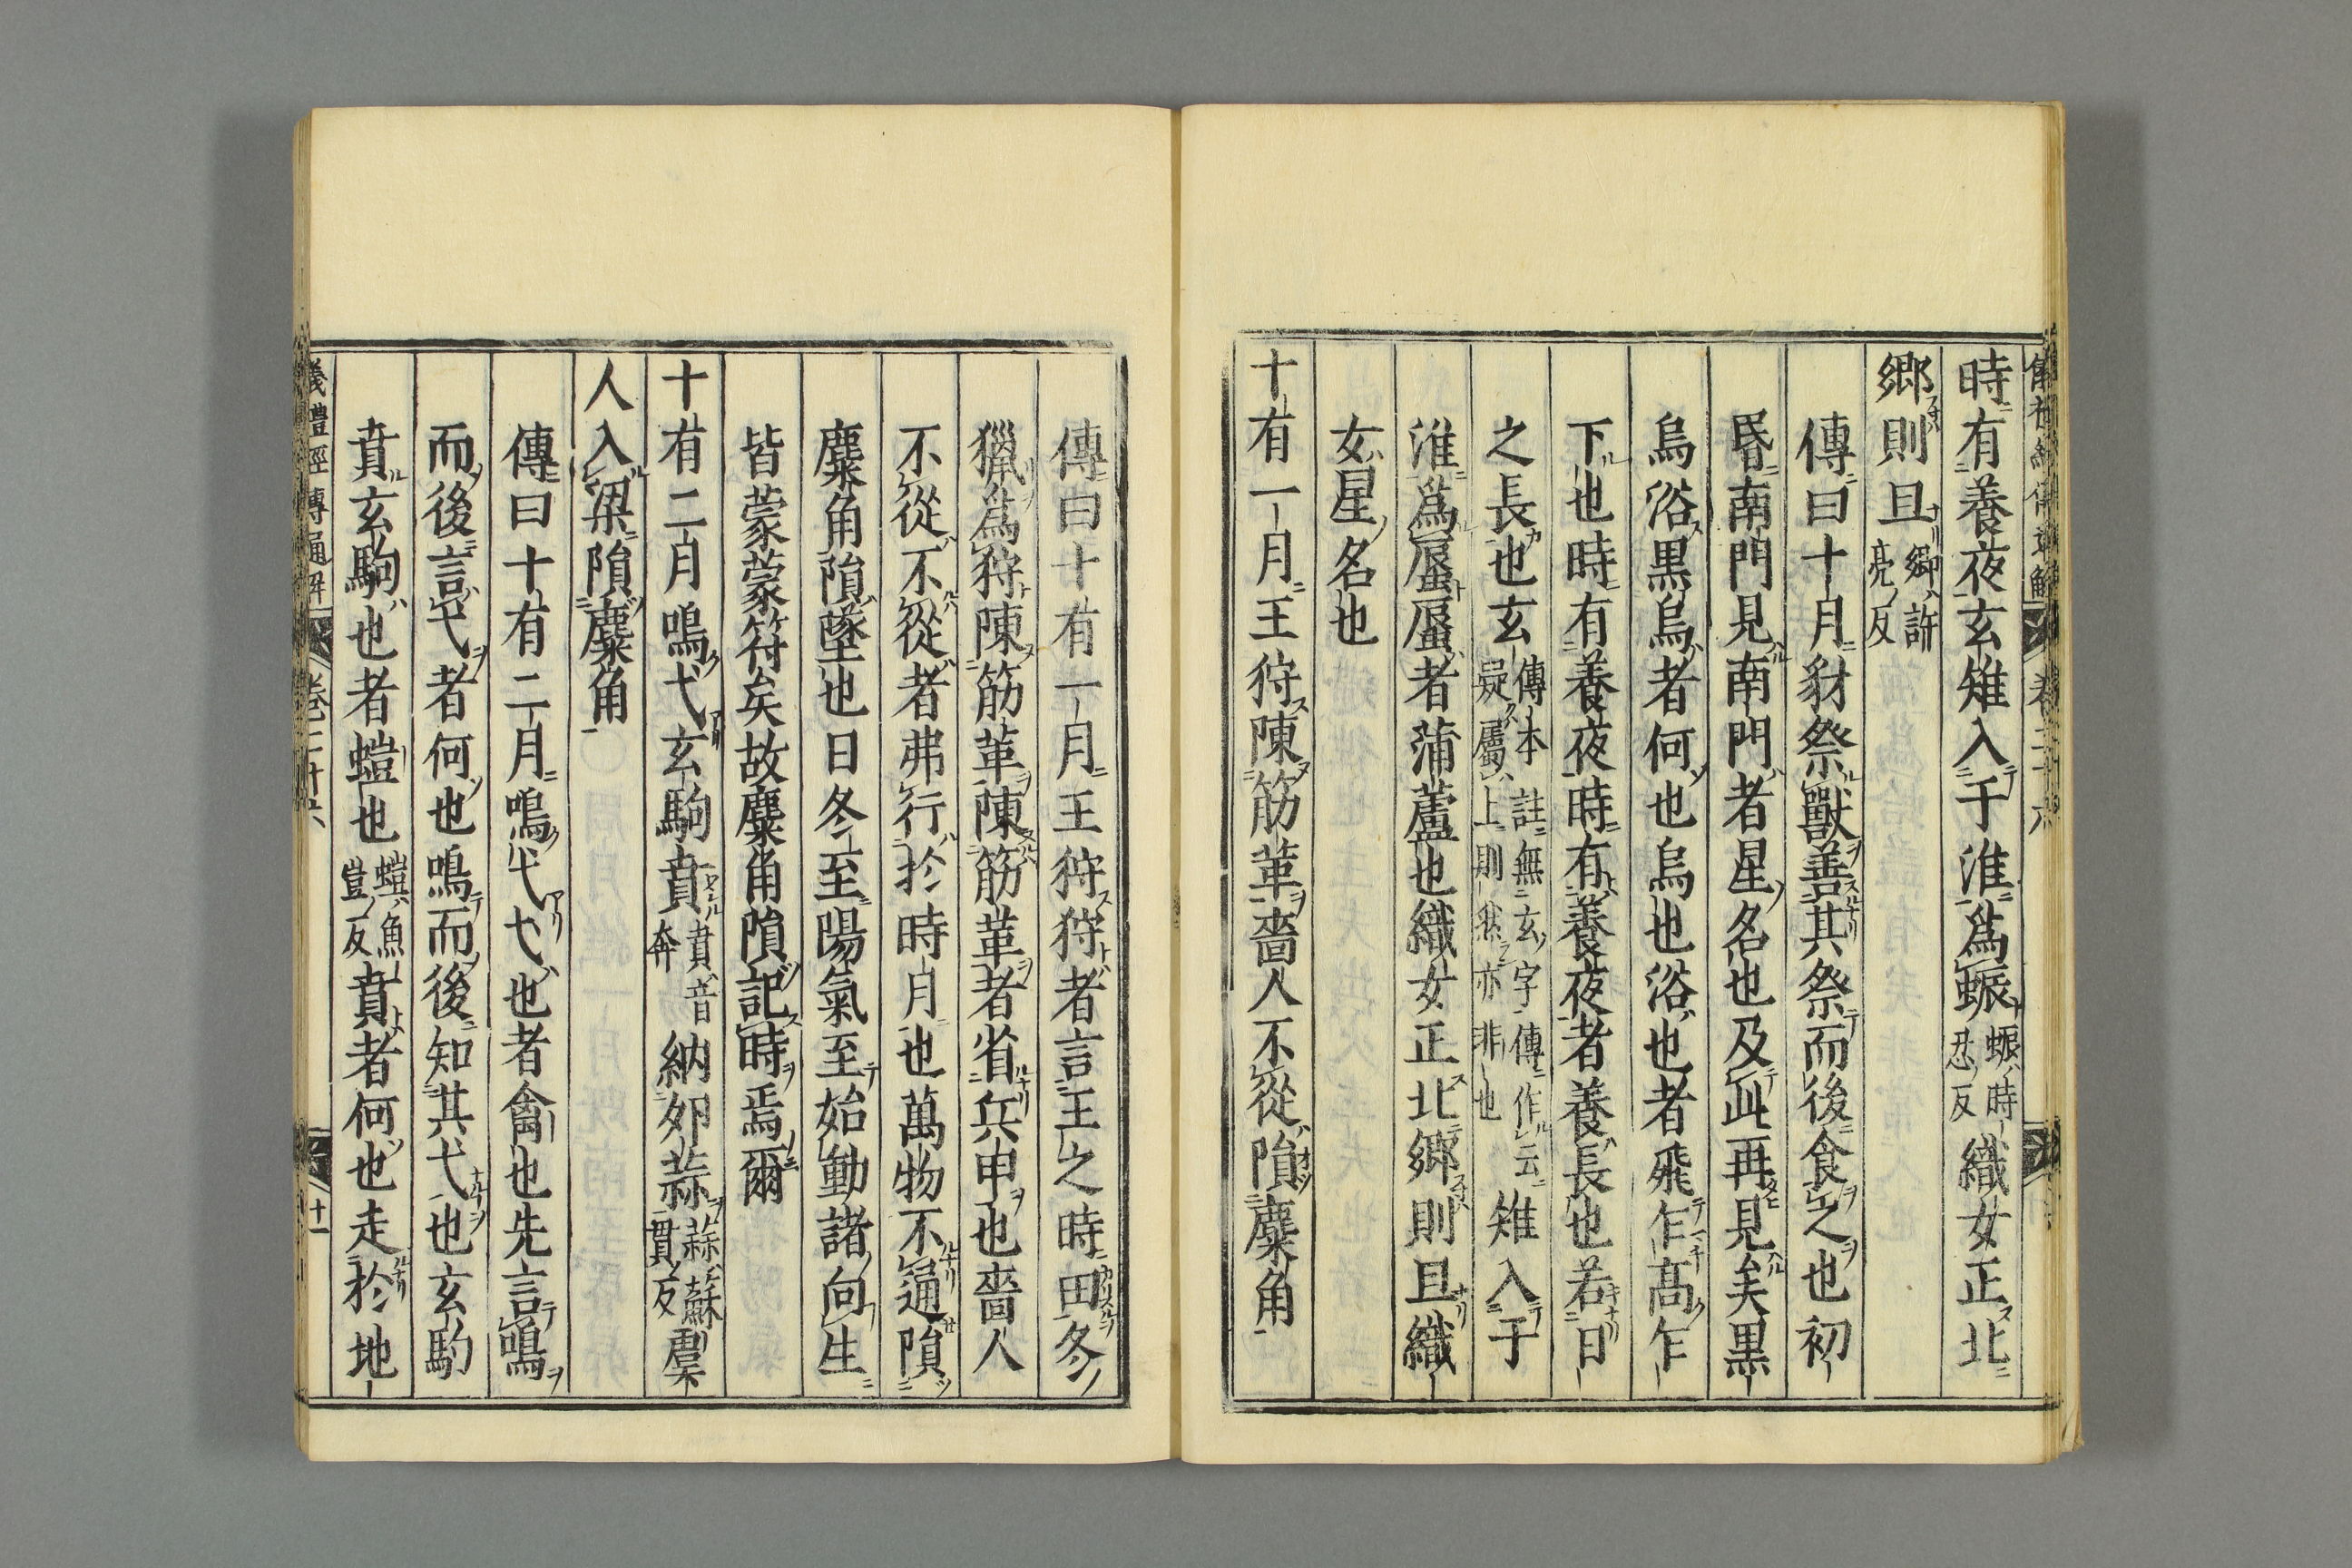 時有養夜玄雉入于淮爲蜃蜃時忍反織女正北
鄉則且鄉許亮反
傳曰十月豺祭獸善其祭而後食之也初
昬南門見南門者星名也及此再見矣黒
烏浴黒烏者何也烏也浴也者飛乍髙乍
下也時有養夜時有養夜者養長也若日
之長也玄傳本註無玄字傳作云疑屬上則然亦非也雉入于
淮爲蜃蜃者蒲蘆也織女正北鄉則且織
女星名也
十有一月王狩陳筋革嗇人不從隕麋角
傳曰十有一月王狩狩者言王之時田冬
獵爲狩陳筋革陳筋革者省兵甲也嗇人
不從不從者弗行於時月也萬物不通隕
麋角隕墜也日冬至陽氣至始動諸向生
皆蒙蒙符矣故麋角隕記時焉爾
十有二月鳴弋玄駒賁賁音奔納夘蒜蒜蘇貫反虞
人入梁隕麋角
傳曰十有二月鳴弋弋也者禽也先言鳴
而後言弋者何也鳴而後知其弋也玄駒
賁玄駒也者螘也螘魚豈反賁者何也走於地
儀禮經傳通解 卷二十六 十一